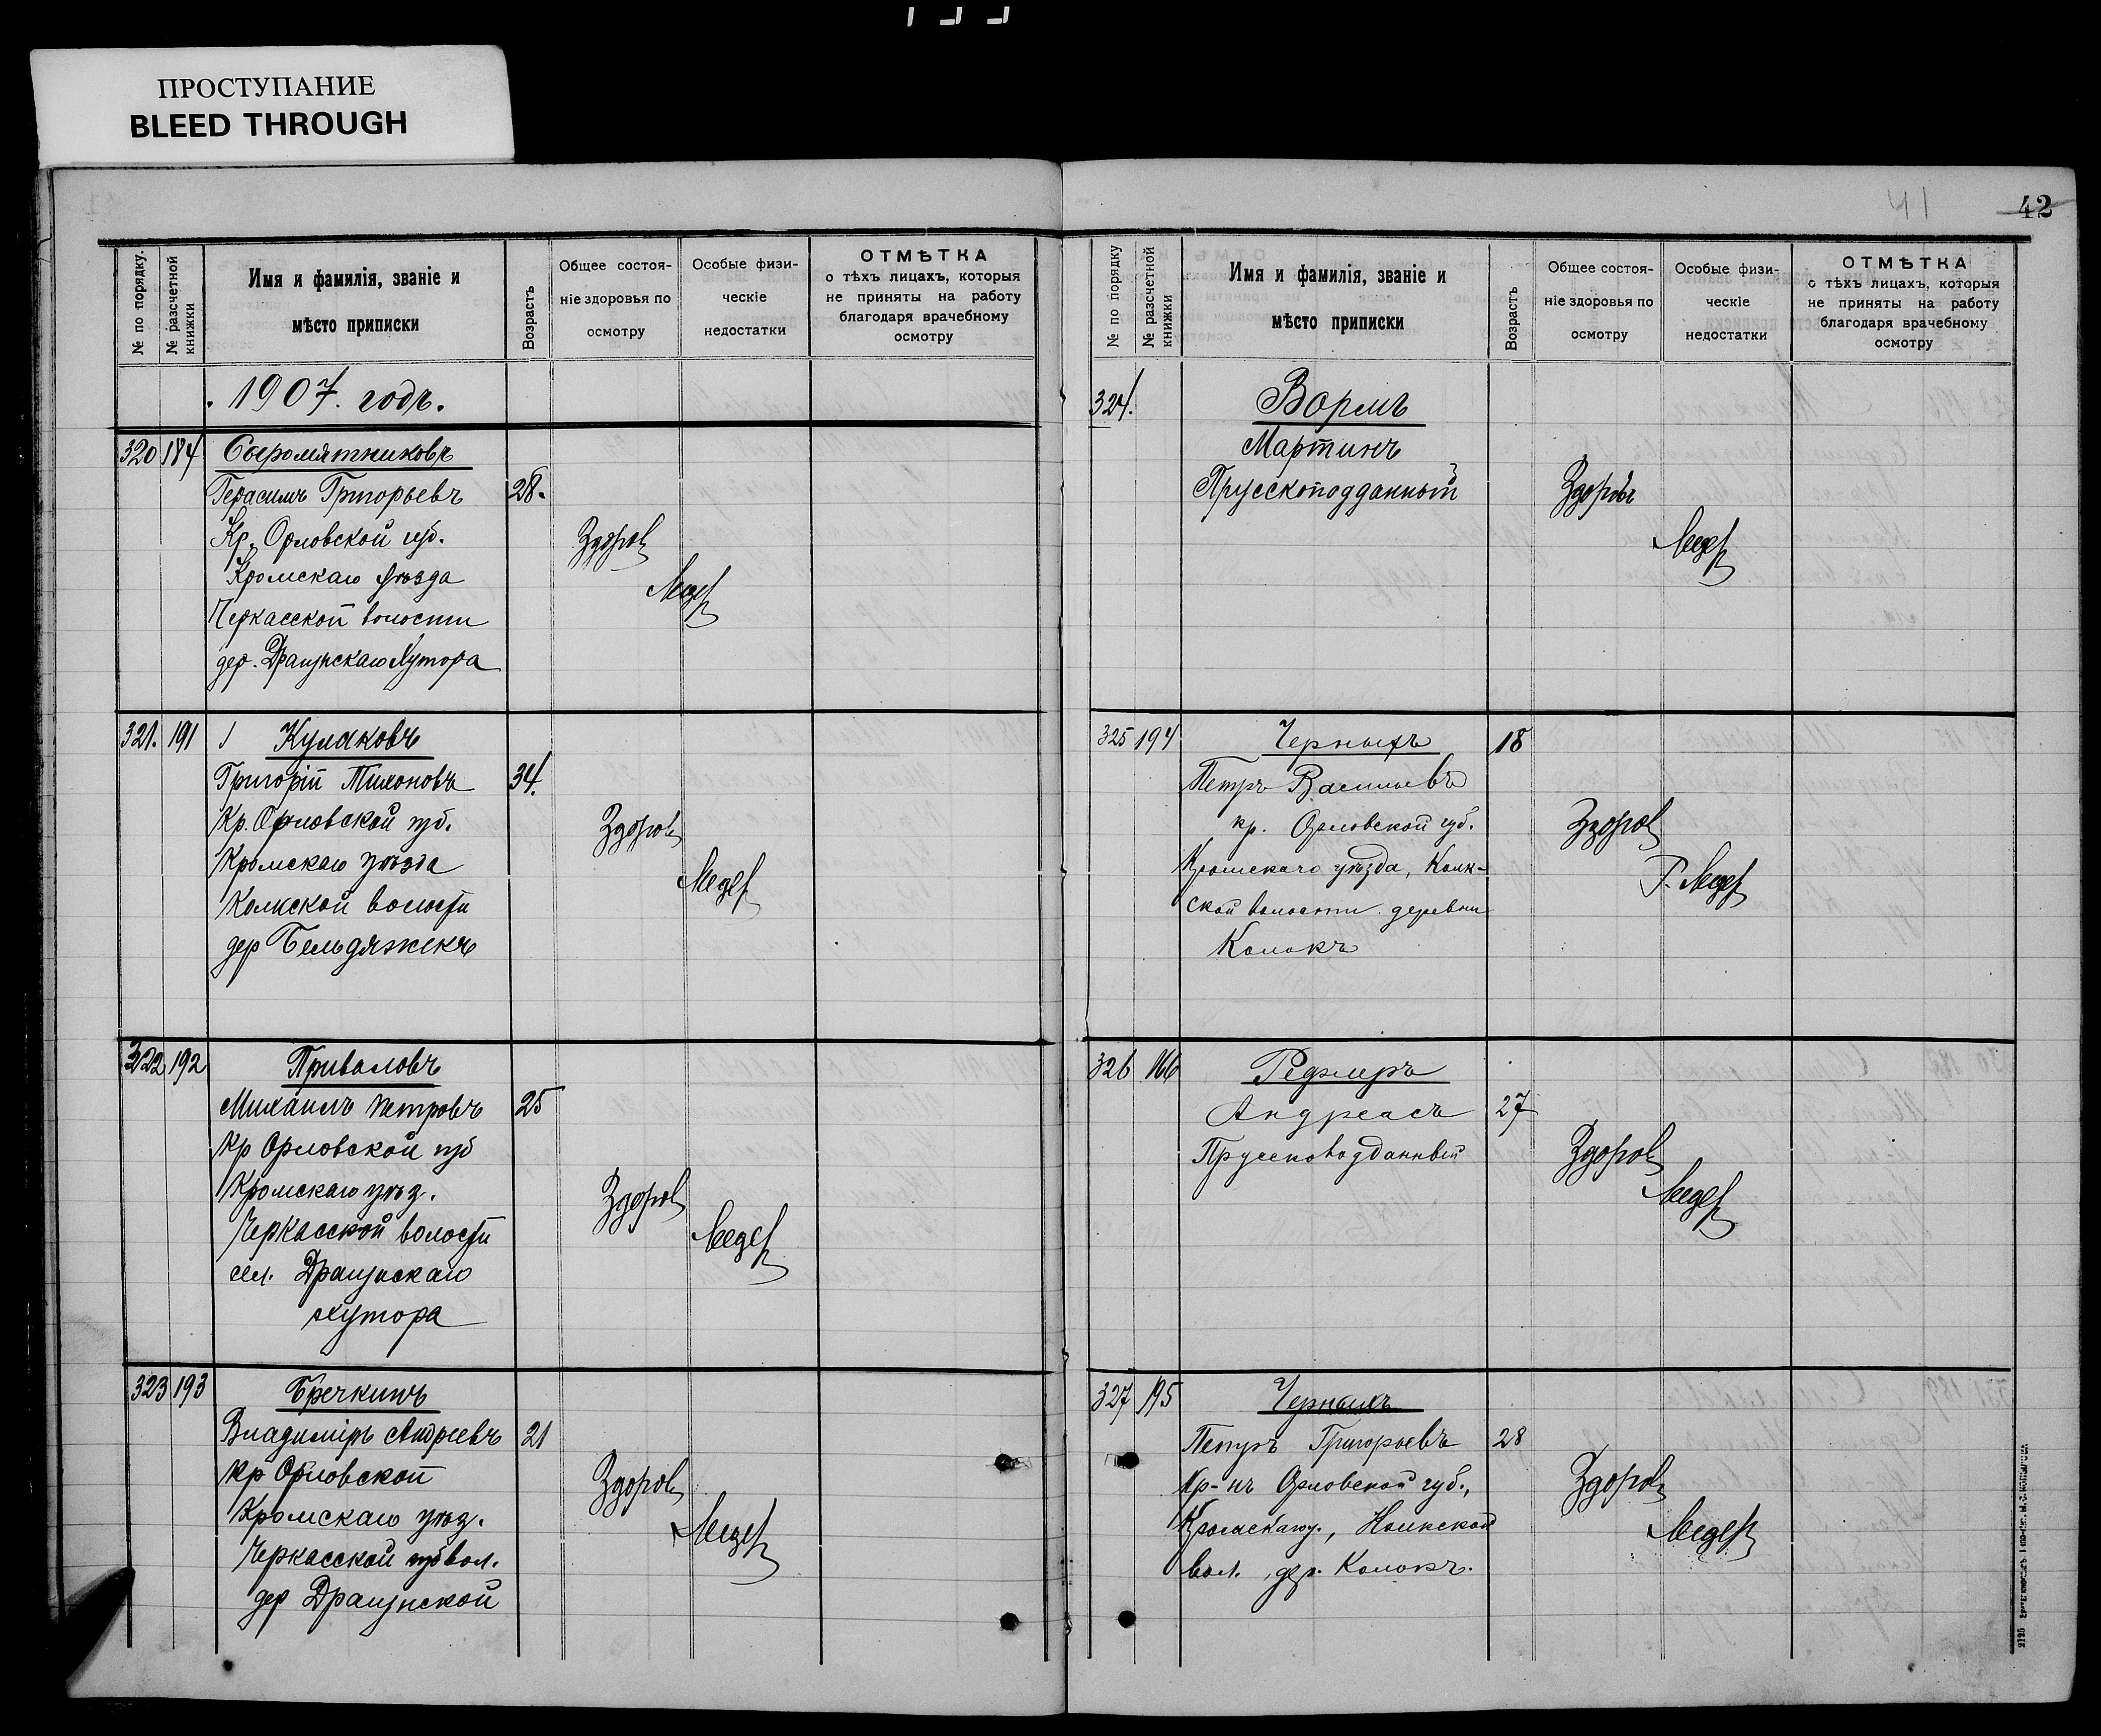 ПРОСТУПАНИЕ
BLEED THROUGH
№ по порядку.
№ разсчетной книжки
Имя и фамилія, званіе и
мѣсто приписки
Возрастъ
Общее состоя-
ніе здоровья по
осмотру
Особые физи-
ческіе
недостатки
ОТМѢТКА
о тѣхъ лицахъ, которыя
не приняты на работу
благодаря врачебному
осмотру
1907. годъ.
320 184 Сыромятниковъ
Герасимъ Григорьевъ 28.
Кр. Орловской губ.
Здоров
Кромскаго уѣзда
Черкасской волости
дер. Хутора
321. 191 Кулаковъ
Григорій Тихоновъ 34.
Кр. Орловской губ.
Здоров
Кромскаго уѣзда
Колкской волости
дер Бельдяжекъ
322 192 Приваловъ
Михаилъ Петровъ 25
Кр Орловской губ
Кромскаго уѣз.
Здоров
Черкасской волости
сел.
хутора
323 193 Бречкинъ
Владиміръ Андреевъ 21
Кр Орловской
Здоров
Кромскаго уѣз.
Черкасской вол.
дер
42
№ по порядку
№ разсчетной книжки
Имя и фамилія, званіе и
мѣсто приписки
Возрастъ
Общее состоя-
ніе здоровья по
осмотру
Особые физи-
ческіе
недостатки
ОТМѢТКА
о тѣхъ лицахъ, которыя
не приняты на работу
благодаря врачебному
осмотру
324. Вормъ
Мартинъ
Прусскоподданный Здоровъ
325 194 Черныхъ 18
Петръ Васильевъ
кр. Орловской губ. Здоров
Кромскаго уѣзда, Колк-
ской волости деревни
Колокъ
326 166 Редлеръ
Андреасъ 27
Прусскоподданный Здоров
327 195 Черныхъ
Петръ Григорьевъ 28
Кр-нъ Орловской губ., Здоров
Кромскаго у., Колкской
вол. дер. Колокъ.